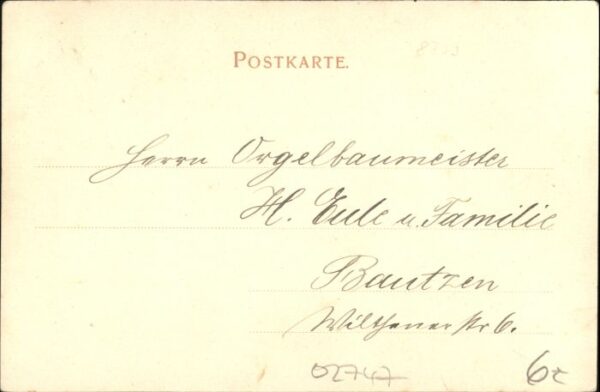 POSTKARTE.
Herrn Orgelbaumeister
H. Eule u. Familie
Bautzen
Wilthener Str 6.
02747